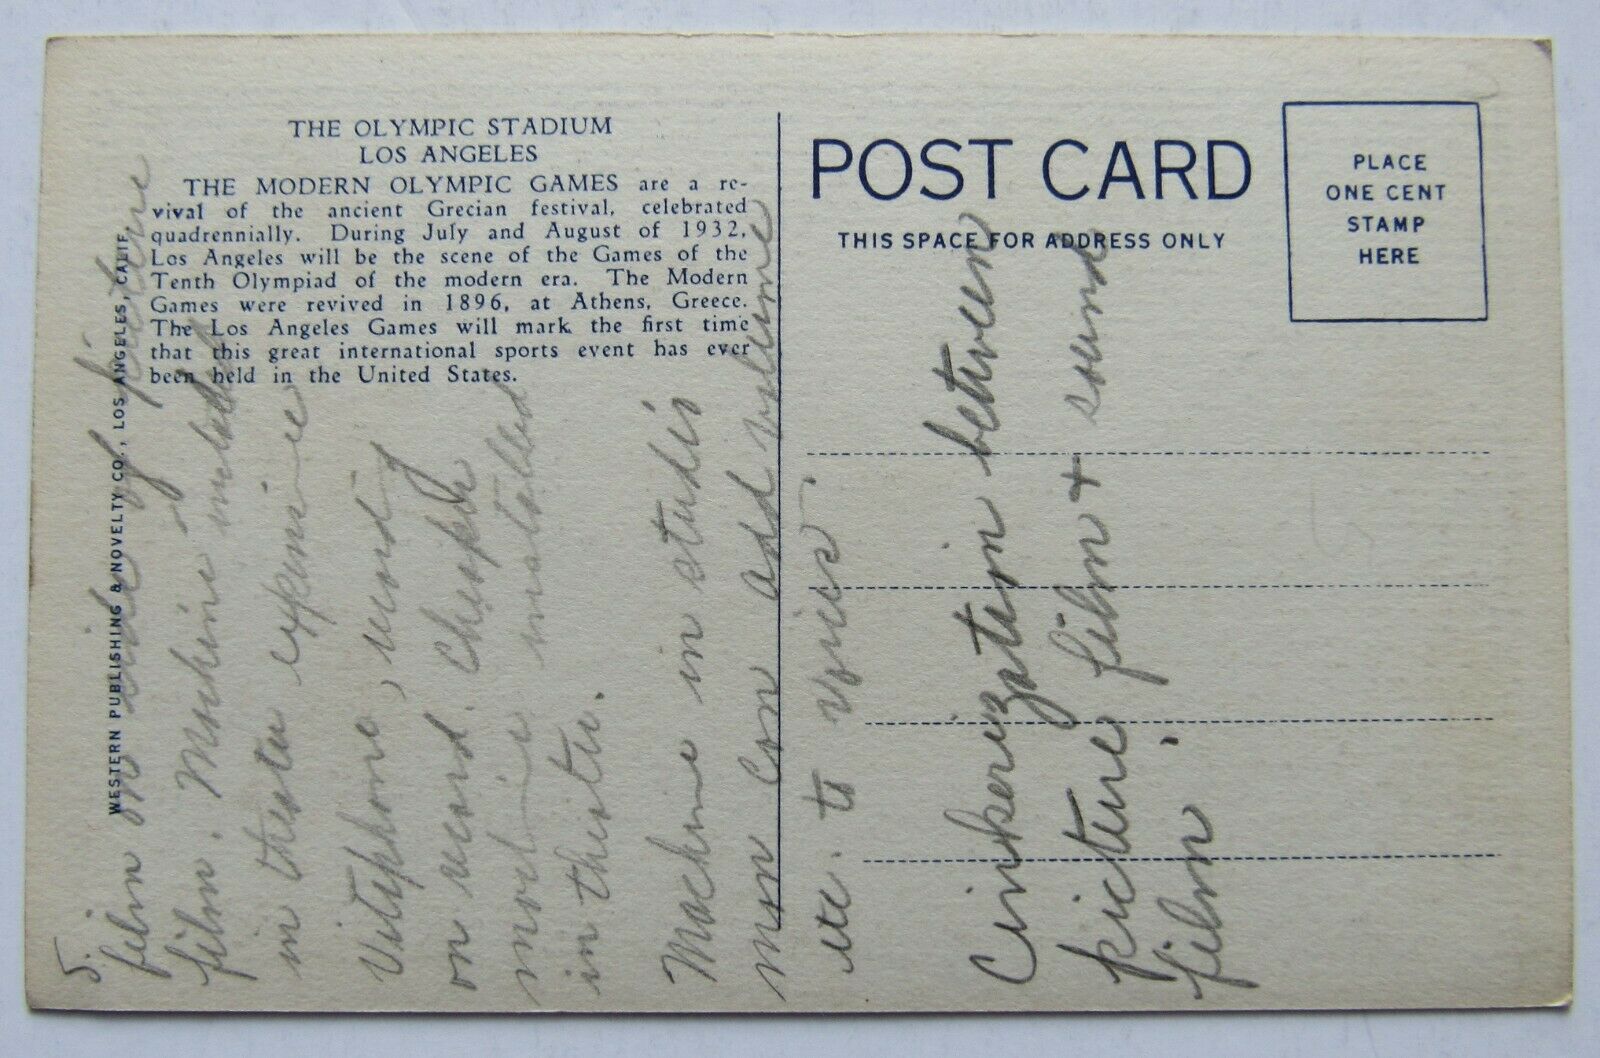 THE OLYMPIC STADIUM
LOS ANGELES
THE MODERN OLYMPIC GAMES are a re-
vival of the ancient Grecian festival, celebrated
quadrennially. During July and August of 1932,
Los Angeles will be the scene of the Games of the
Tenth Olympiad of the modern era. The Modern
Games were revived in 1896, at Athens, Greece.
The Los Angeles Games will mark the first time
that this great international sports event has ever
been held in the United States.
WESTERN PUBLISHING & NOVELTY CO., LOS ANGELES, CALIF.
POST CARD
THIS SPACE FOR ADDRESS ONLY
PLACE
ONE CENT
STAMP
HERE
5.
film on side of picture
film. Machine installed
in theater expensive
Vitaphone, recording
on record. Cheaper
machine installed
in theater.
Machine in studio
man can add volume
etc. to voices.
between
picture film + sound
film.